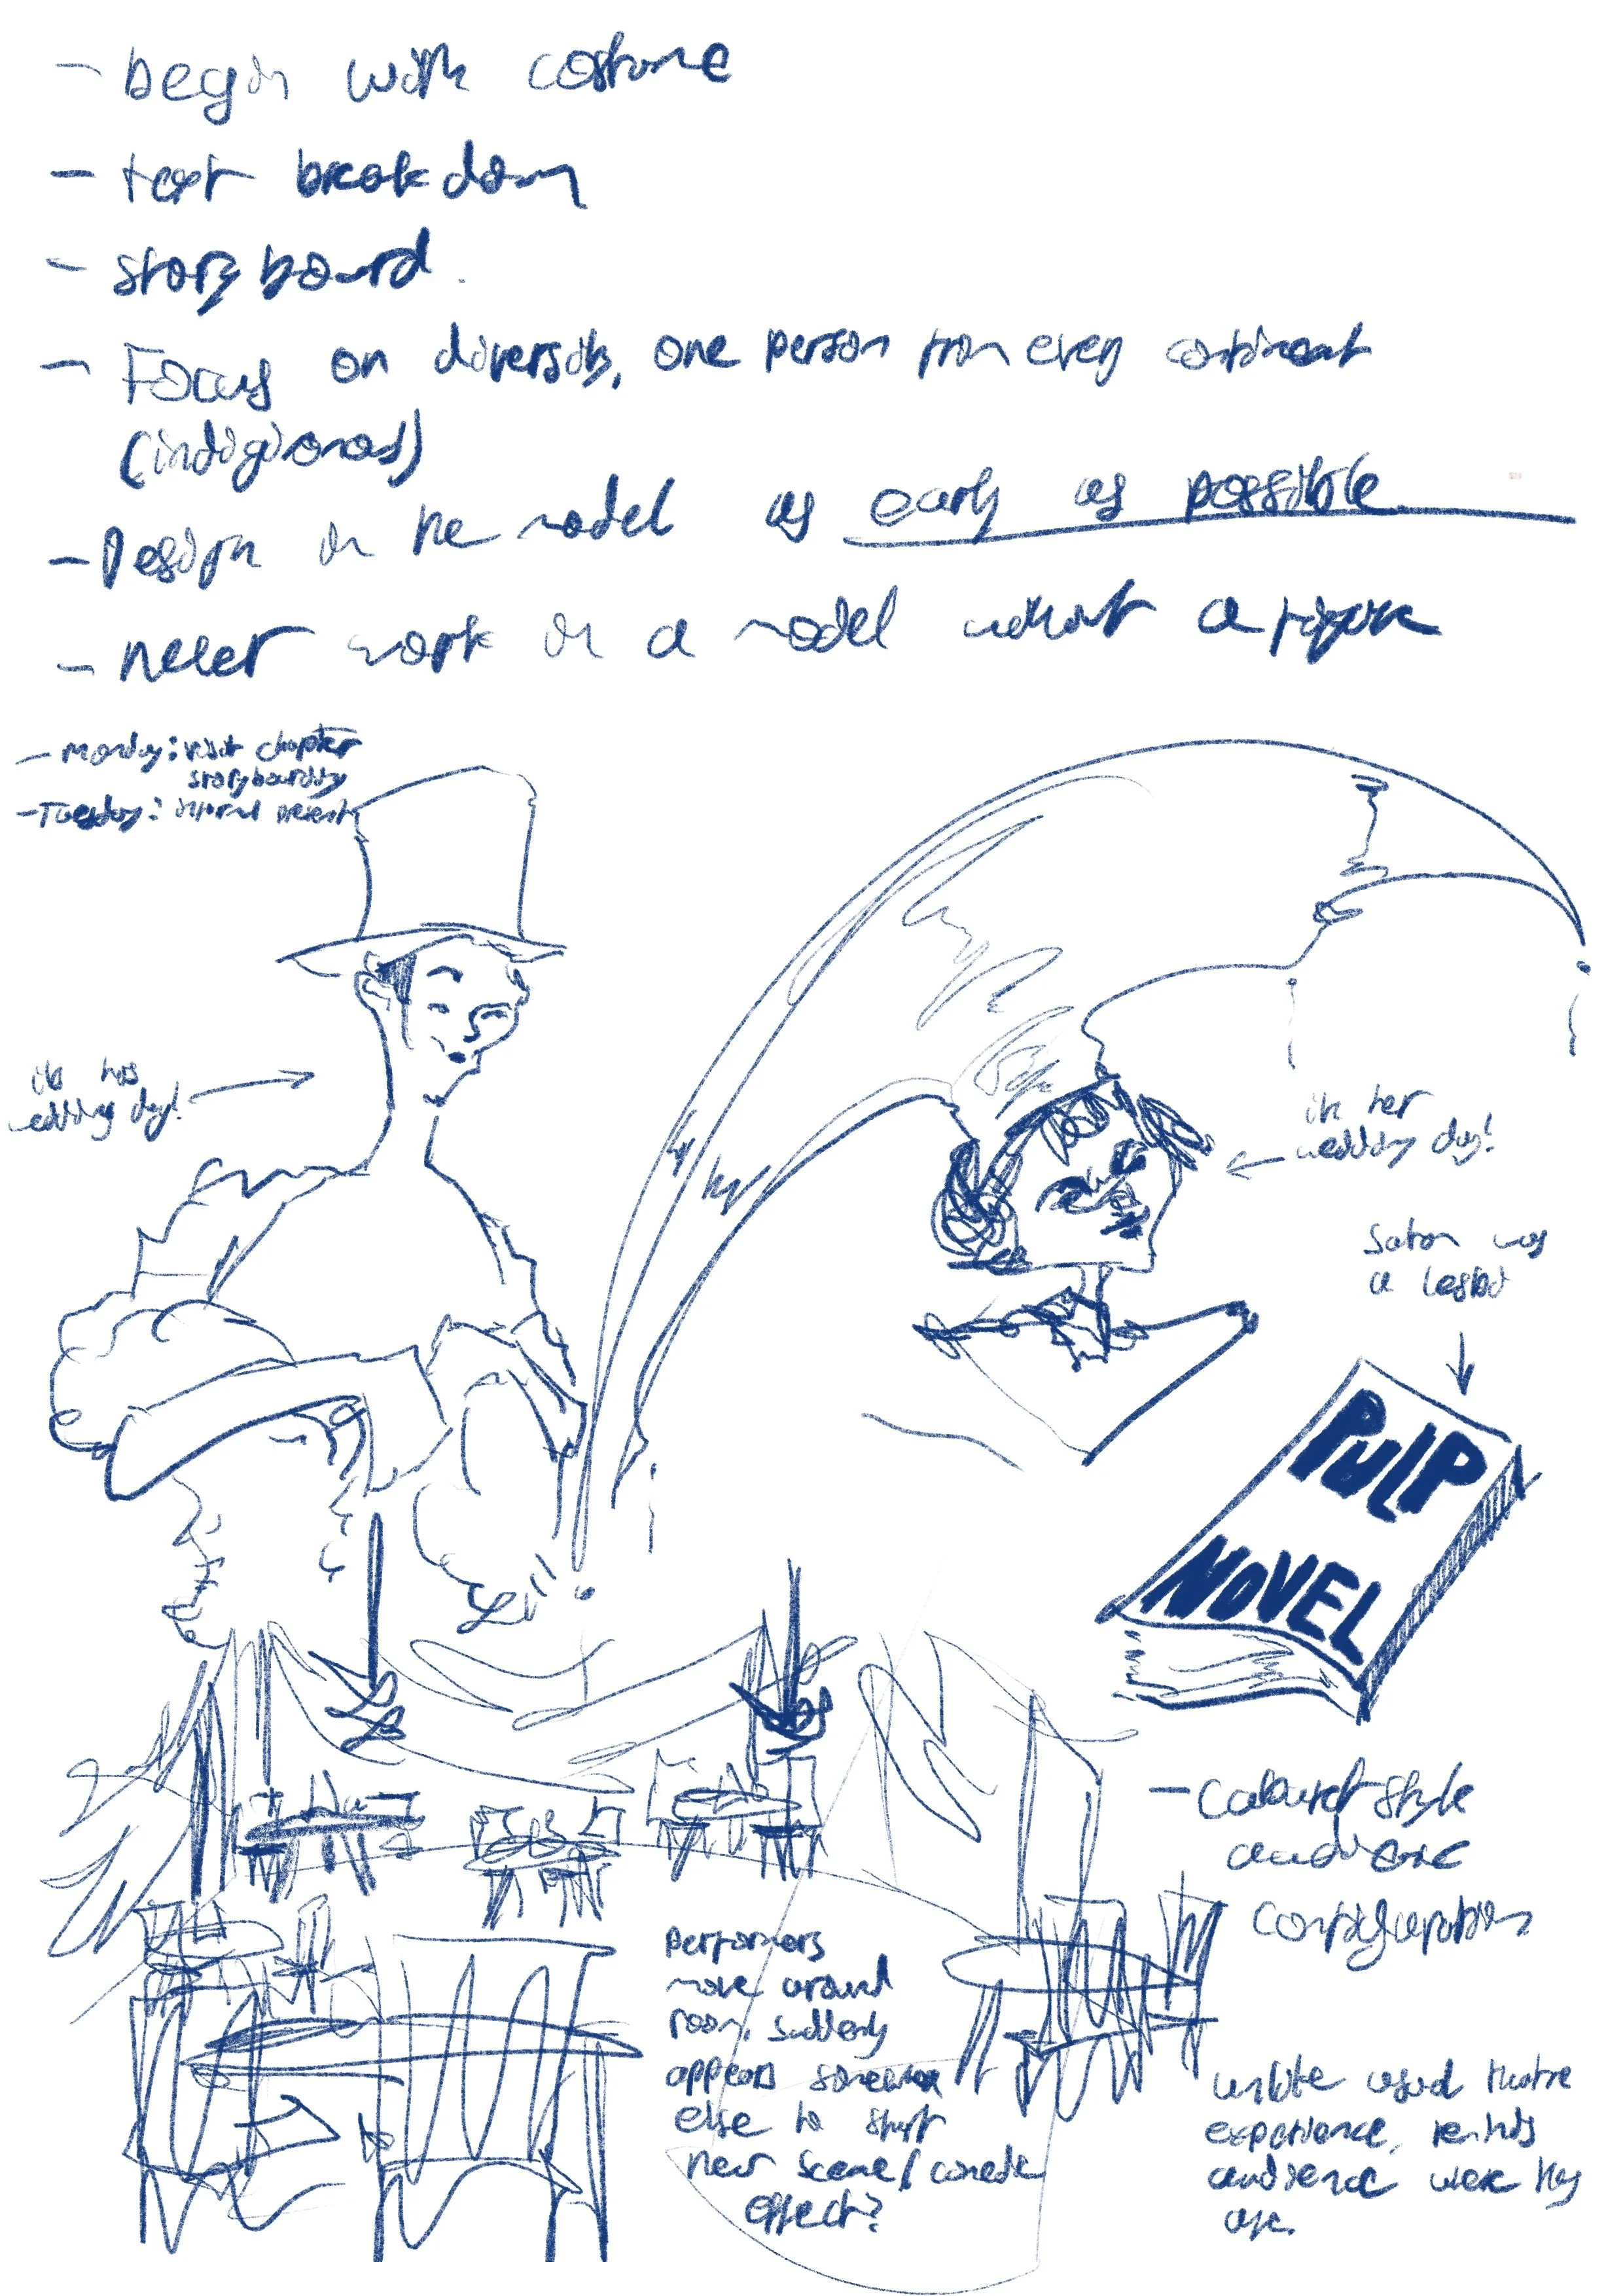 - begin with costume
- text breakdown
- storyboard.
- Focus on diversity, one person from every continent
(indigionas)
- Design in the model as early as possible
- never work in a model without a figure
- Monday: visit chapter
storyboarding
- Tuesday: internal present
its his
wedding day!
its her
wedding day!
Satan was
a lesbo
PULP
NOVEL
- Cabaret style
audience
configuration
performers
move around
room, suddenly
appears somewhere
else to start
new scene/comedic
effect?
unlike usual theatre
experience, reminds
audience where they
are.